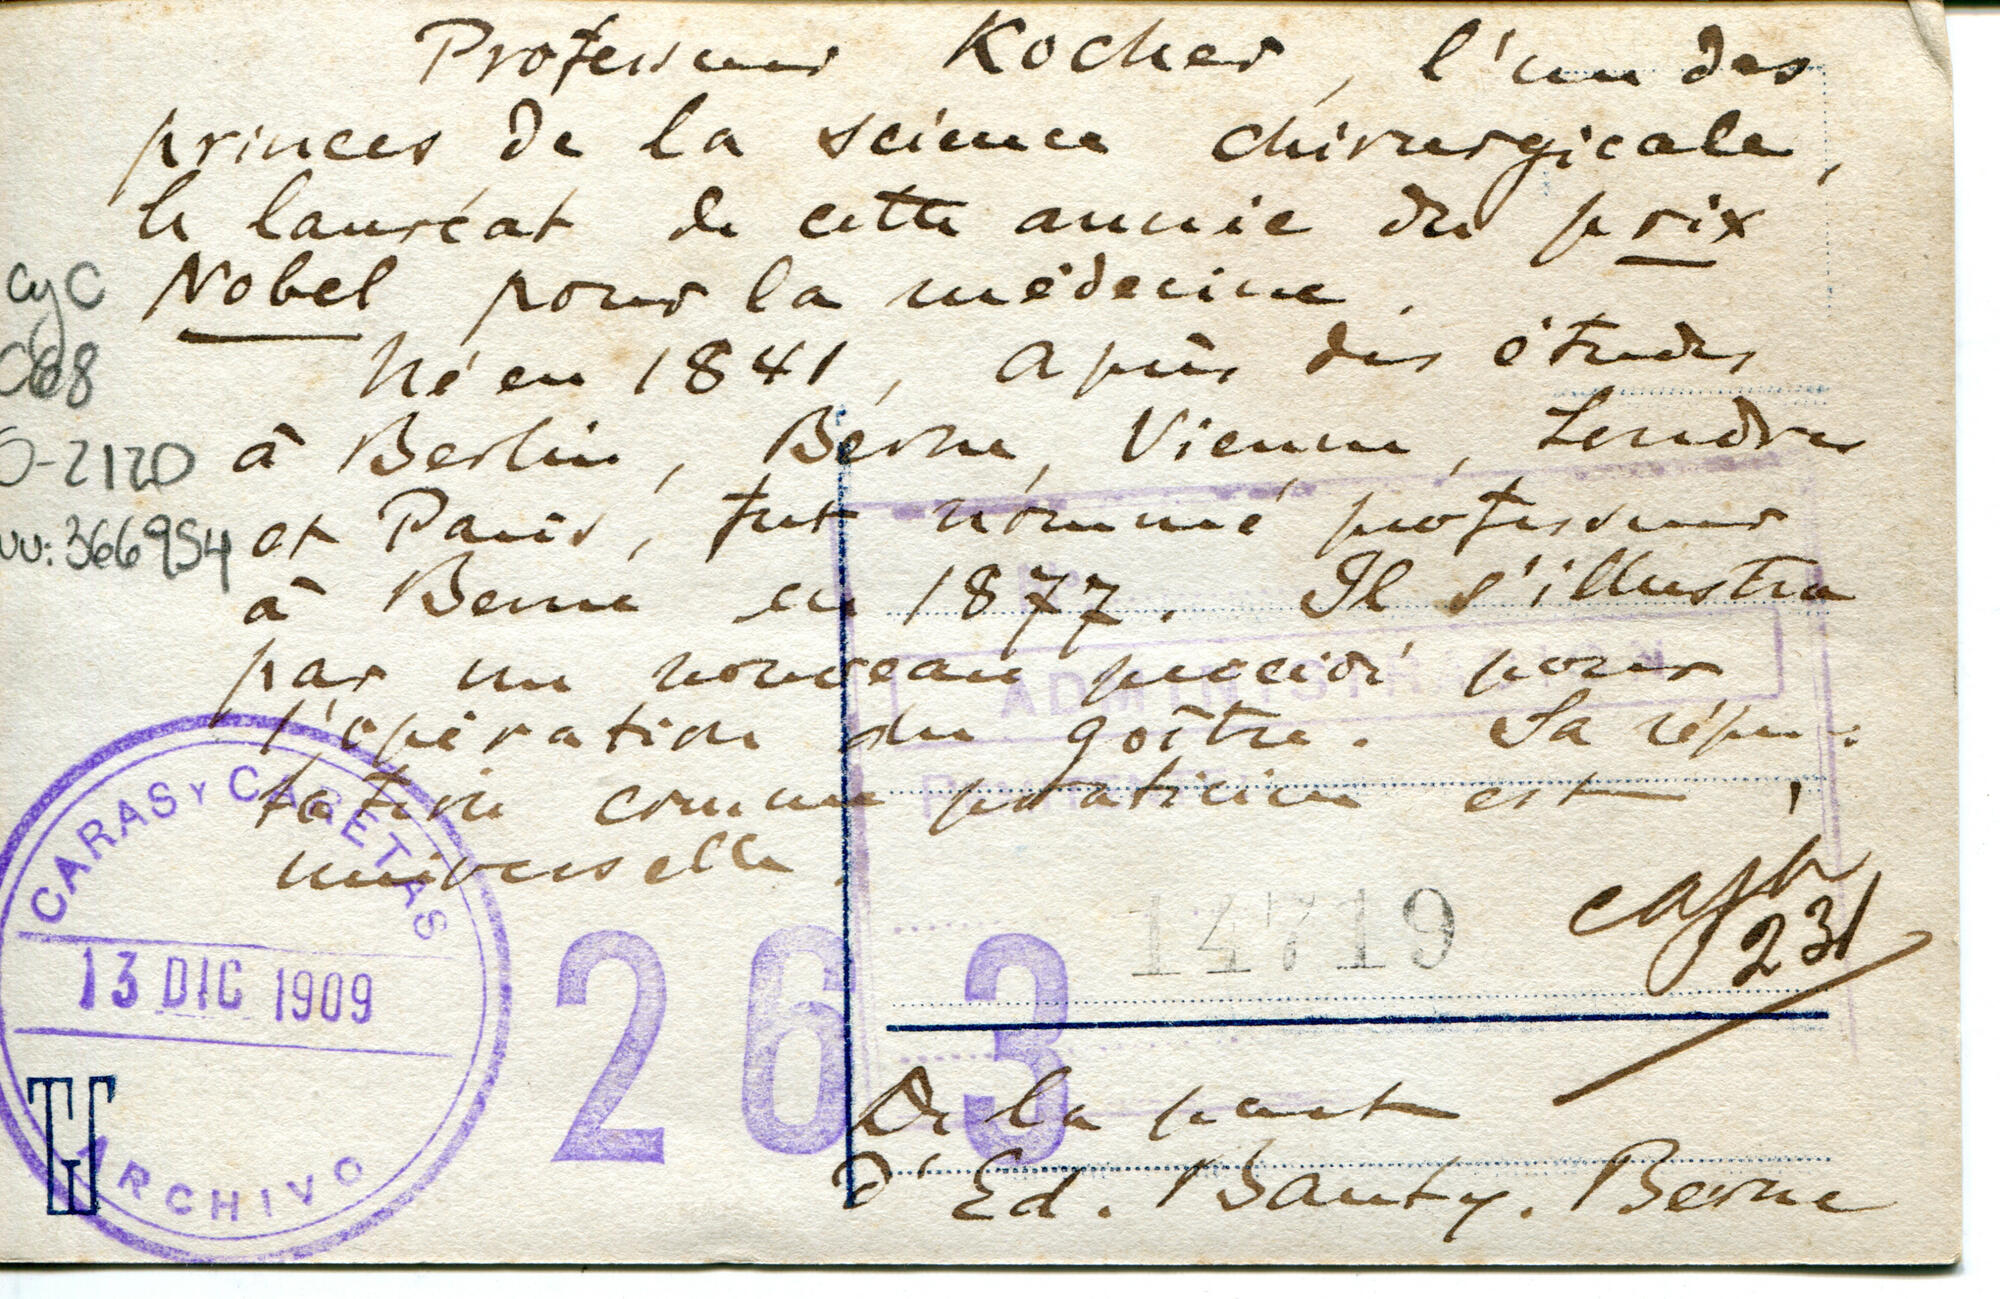 Professeur Kocher, l'un des
princes de la science chirurgicale,
le lauréat de cette année du prix
Nobel pour la médecine.
Né en 1841, après des études
à Berlin, Berne, Vienne, Londres
et Paris, fut nommé professeur
à Berne en 1877. Il s'illustra
par un nouveau procédé pour
l'opération du goître. Sa répu-
tation comme praticien est
universelle.
cyC
068
O-2120
366954
CARAS Y CARETAS
13 DIC 1909
ARCHIVO
263
ADMINISTRACION
14719
231
De la part
d'Ed. Bauty. Berne